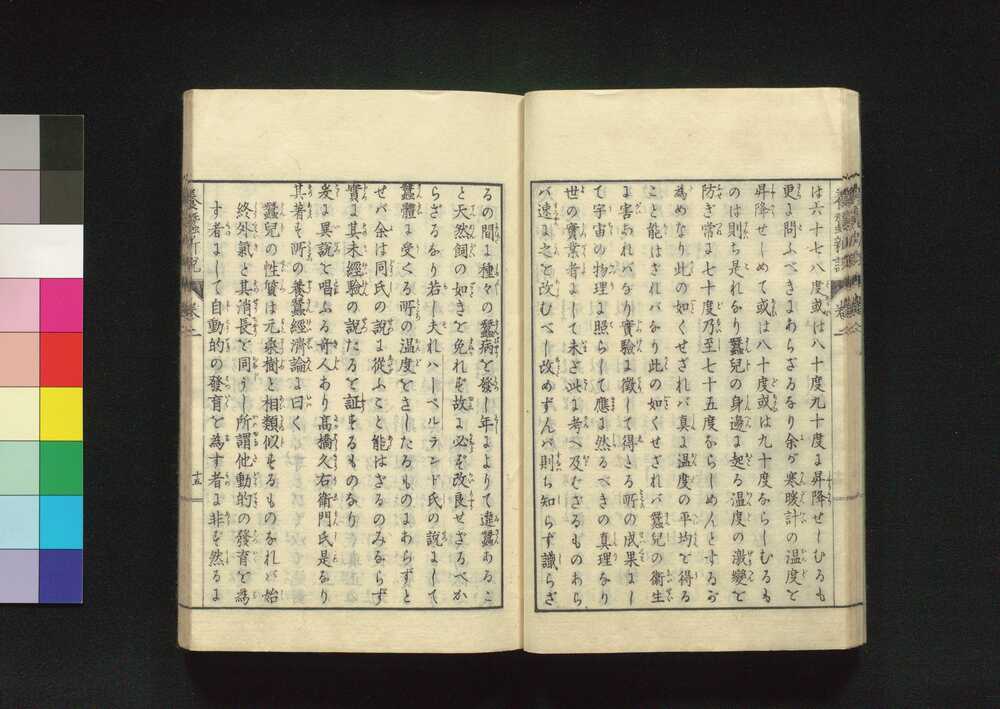 は六十七八度或は八十度九十度ま昇降せしむるも
更ま問ふべきまあらざるなり余が寒暖計の温度を
昇降せしめて或は八十度或は九十度ならしむるも
のは則ち是れなり蠶兒の身邊ま起る温度の激變を
防ぎ常ま七十度乃至七十五度ならしめんとするが
為めなり此の如くせざれバ真ま温度の平均を得る
こと能はざれバなり此の如くせざれバ蠶兒の衛生
ま害あれバなり實驗ま徴して得たる所の成果まし
て宇宙の物理ま照らして應ま然るべきの真理なり
世の實業者まして未ざ此ま考へ及むざるものあら
バ速ま之を改むべし改めずんバ則ち知らず識らざ
るの間ま種々の蠶病を發し年まよりて違蠶あるこ
と天然飼の如きを免れぞ故ま必ぞ改良せざるべか
らざるなり若し夫れハーベルランド氏の説まして
蠶體ま受くる所の温度をさしたるものまあらずと
せバ余は同氏の説ま從ふこと能はざるのみならず
實ま其未經驗の説たるを証するものなり
爰ま異説を唱ふる奇人あり高橋久右衛門氏是なり
其著も所の養蠶經濟論ま曰く
蠶兒の性質は元桑樹と相類似もるものなれバ始
終外氣と其消長を同うし所謂他動的の發育を為
す者まして自動的の發育を為す者ま非ぞ然るま
養蠶新説
卷一
十五